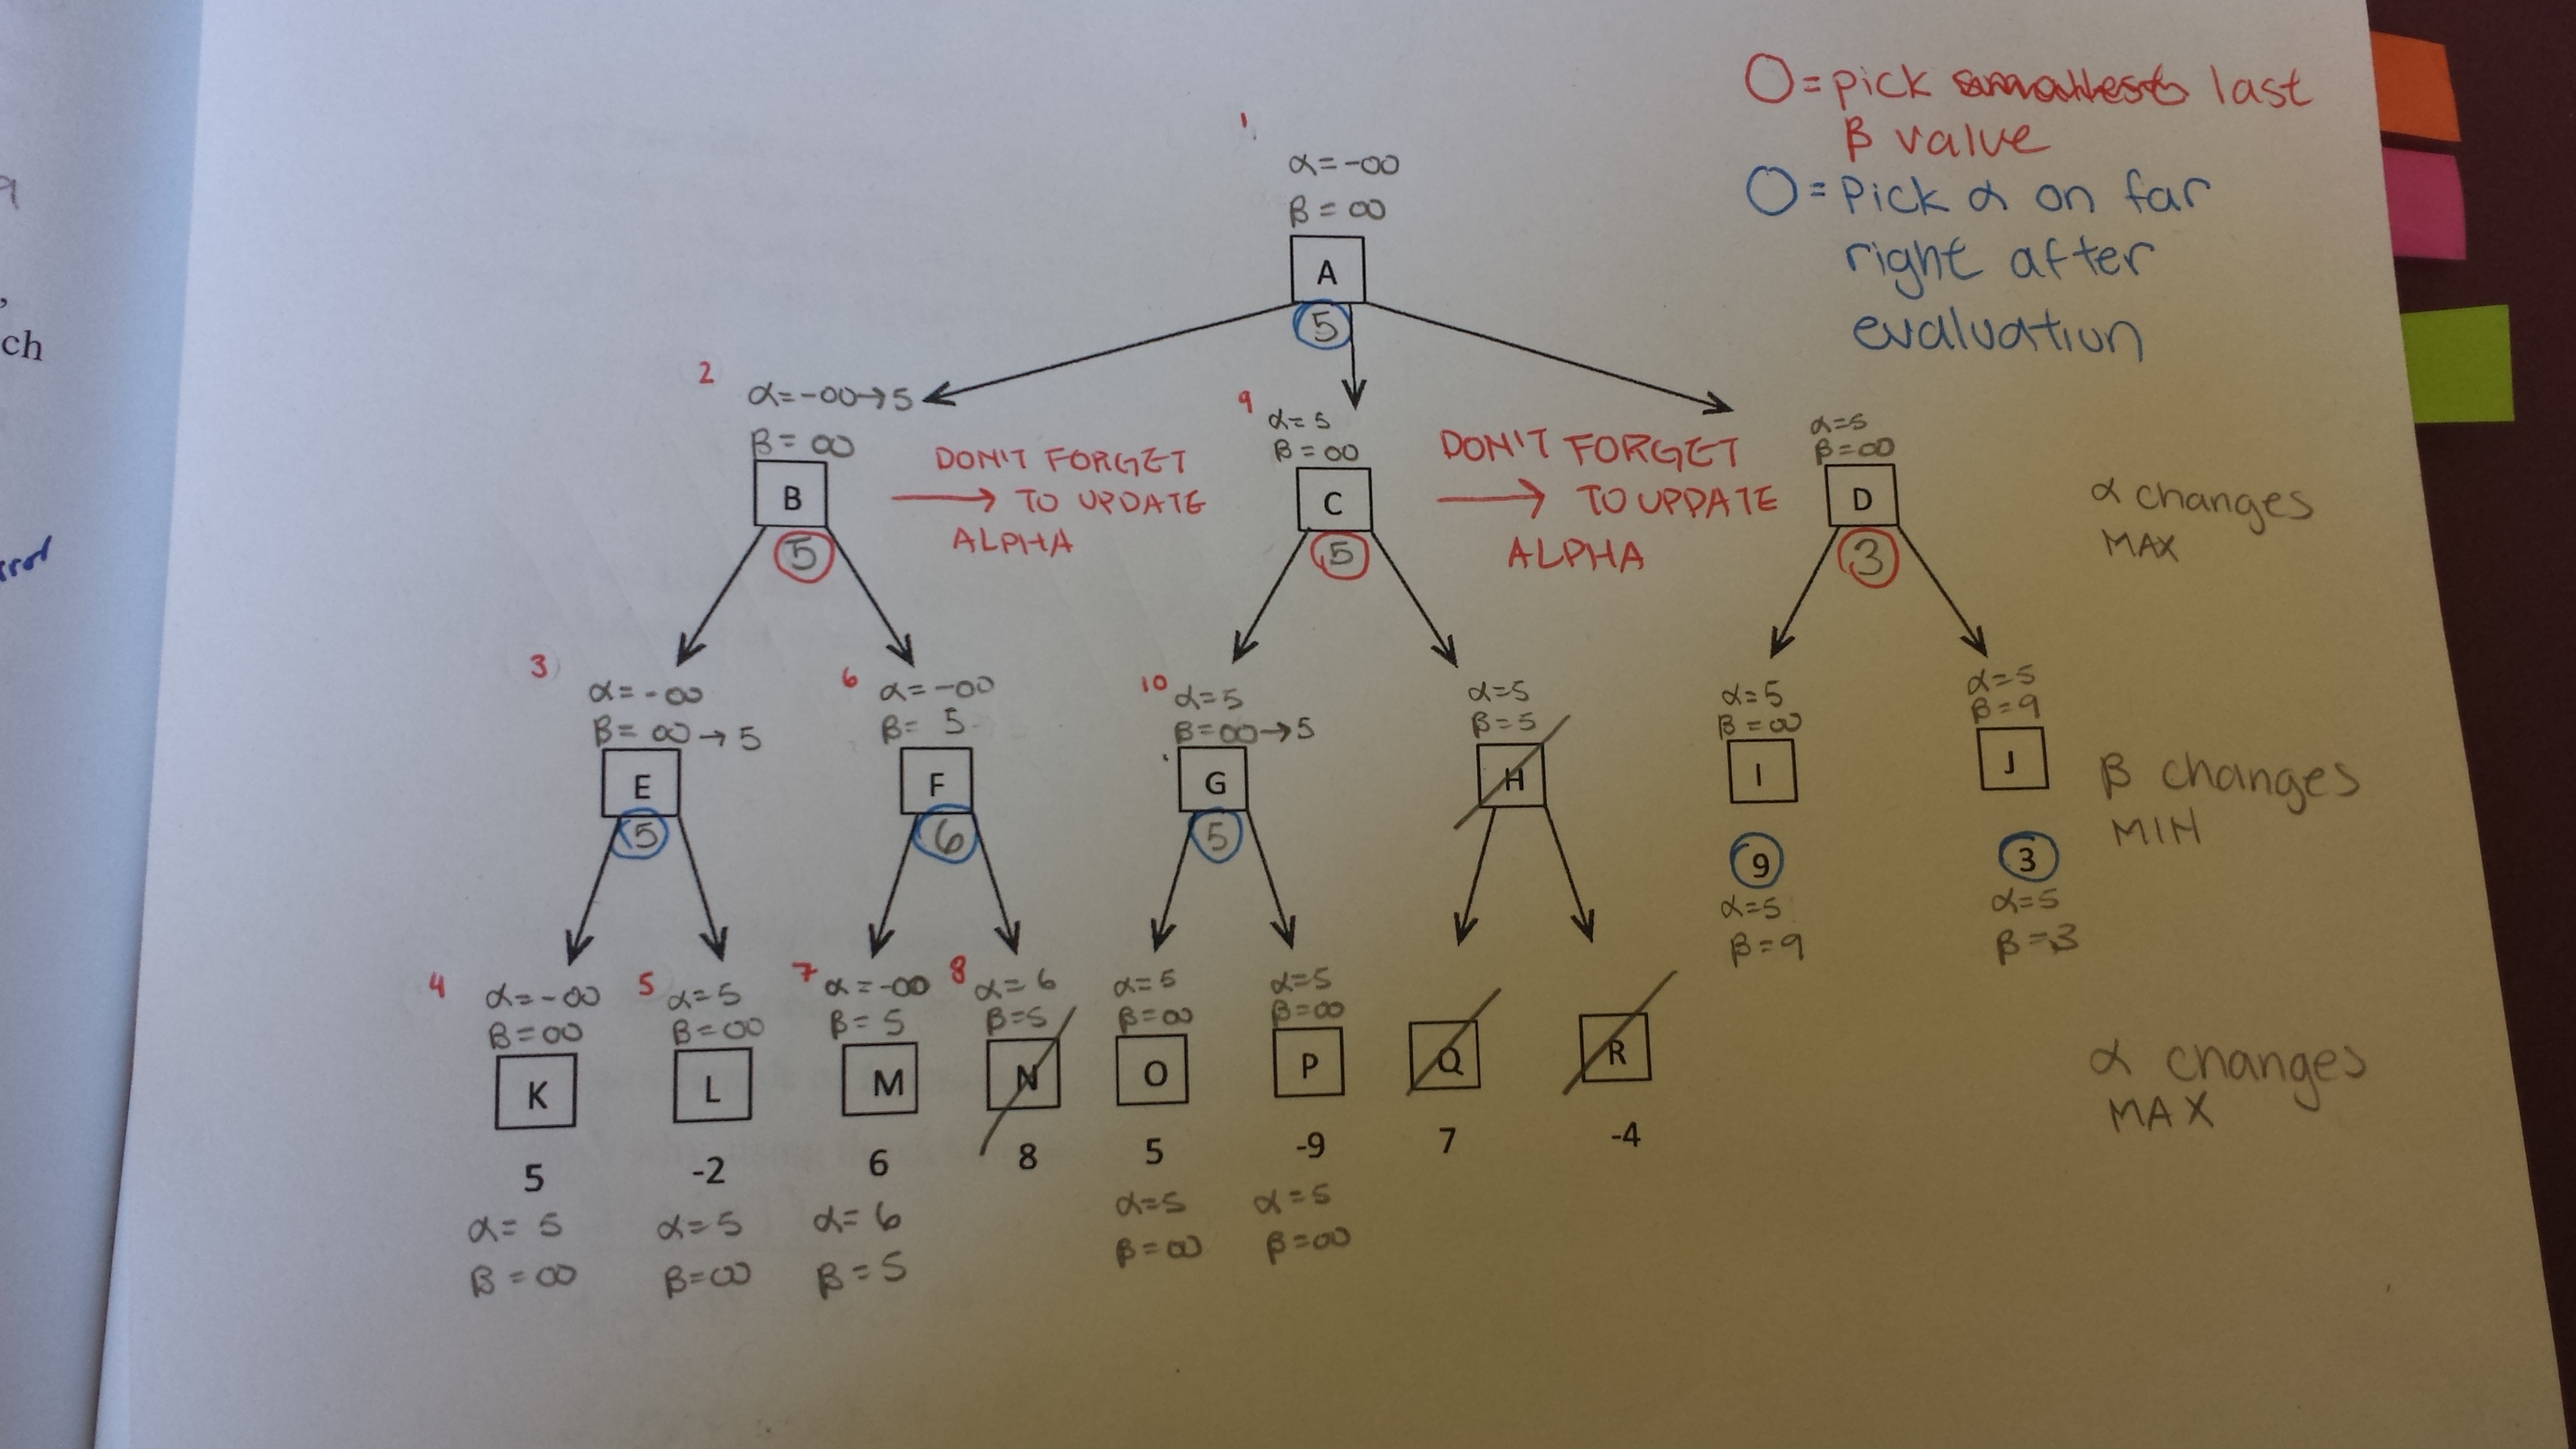 O = pick smallest last
β value
O = Pick α on far
right after
evaluation
ch
1
α = -∞
β = ∞
A
5
2
α = -∞ → 5
β = ∞
B
5
DON'T FORGET
→ TO UPDATE
ALPHA
9
α = 5
β = ∞
C
5
DON'T FORGET
→ TO UPDATE
ALPHA
α=5
β=∞
D
3
α changes
MAX
3
α = -∞
β = ∞ → 5
E
5
6
α = -∞
β = 5
F
6
10
α = 5
β = ∞ → 5
G
5
α=5
β=5
H
α=5
β=∞
I
9
α=5
β=9
α=5
β=9
J
3
α=5
β=3
β changes
MIN
4
α = -∞
β = ∞
K
5
α = 5
β = ∞
5
α=5
β=∞
L
-2
α=5
β=∞
7
α = -∞
β = 5
M
6
α = 6
β = 5
8
α = 6
β=5
N
8
α=5
β=∞
O
5
α=5
β=∞
α=5
β=∞
P
-9
α=5
β=∞
Q
7
R
-4
α changes
MAX